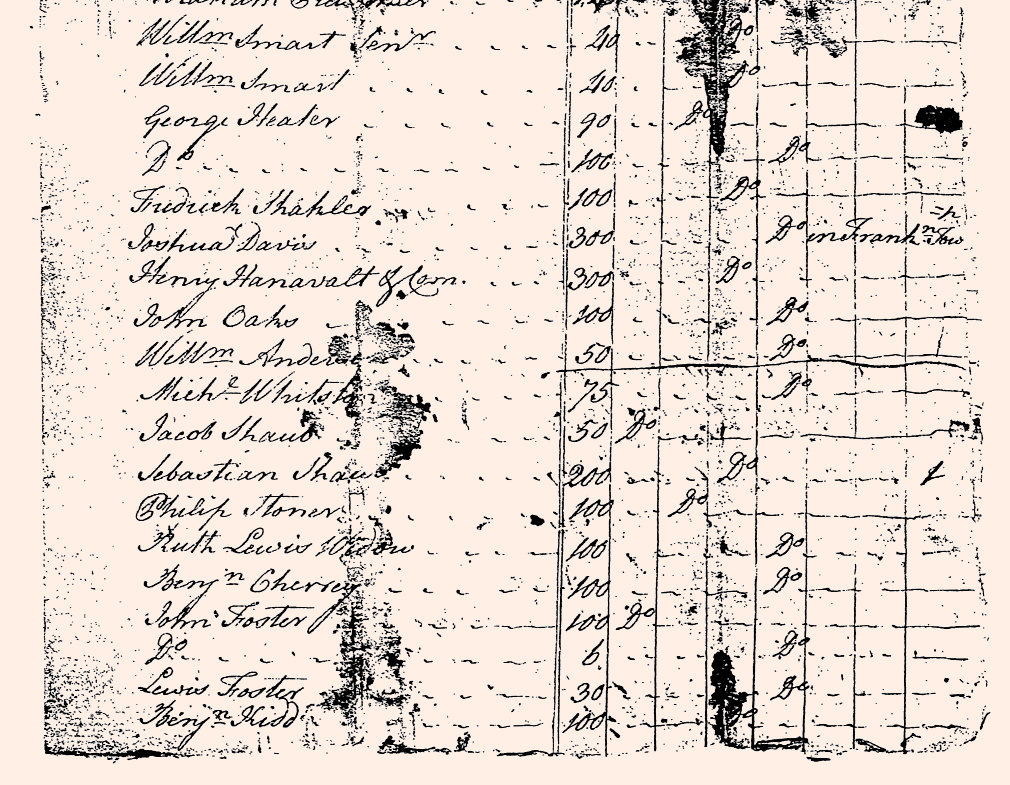 Willm Smart Senr 40 Do
Willm Smart 40 Do
George Heater 90 Do
Do 100 Do
Fredrick Shakler 100 Do
Joshua Davis 300 Do in Frankn Tow =p
Henry Hanavalt & Com. 300 Do
John Oaks 100 Do
Willm 50 Do
Michl 75 Do
Jacob Shaub 50 Do
Sebastian 200 Do 1
Philip Stoner 100 Do
Ruth Lewis Widow 100 Do
Benjn Cherrey 100 Do
John Foster 100 Do
Do 6 Do
Lewis Foster 30 Do
Benjn Kidd 100 Do